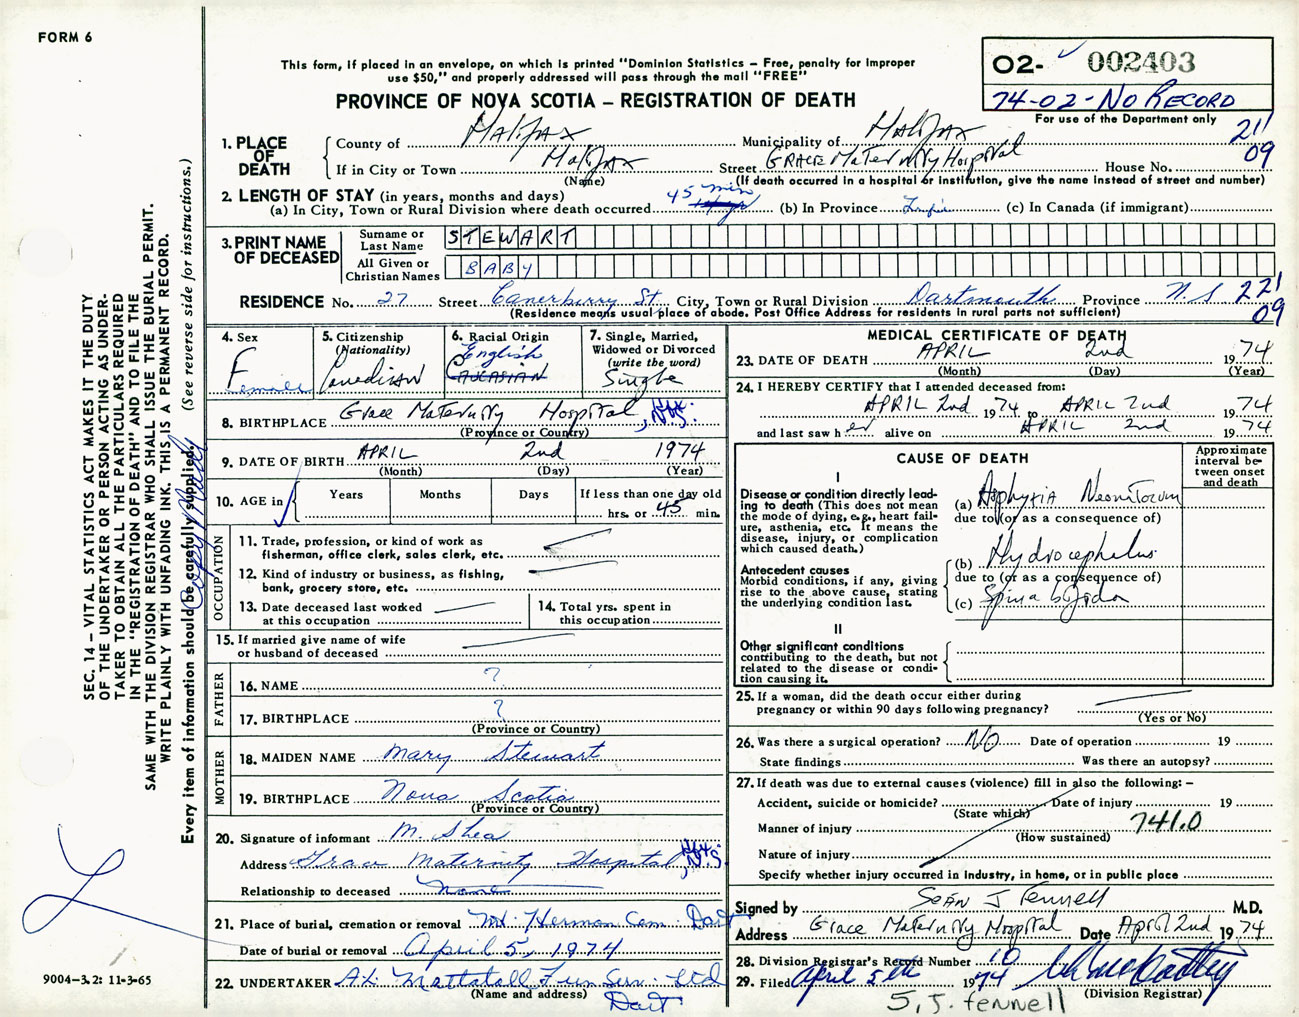 FORM 6
This form, if placed in an envelope, on which is printed "Dominion Statistics – Free, penalty for improper
use $50," and properly addressed will pass through the mail "FREE"
PROVINCE OF NOVA SCOTIA – REGISTRATION OF DEATH
02- 002403
74-02-No Record
For use of the Department only
211
09
1. PLACE OF DEATH
County of Halifax Municipality of Halifax
If in City or Town Halifax Street Grace Maternity Hospital House No.
(Name) (If death occurred in a hospital or institution, give the name instead of street and number)
2. LENGTH OF STAY (in years, months and days)
(a) In City, Town or Rural Division where death occurred 45 min (b) In Province Life (c) In Canada (if immigrant)
3. PRINT NAME OF DECEASED
Surname or Last Name STEWART
All Given or Christian Names BABY
RESIDENCE No. 27 Street City, Town or Rural Division Dartmouth Province N.S 221
09
(Residence means usual place of abode. Post Office Address for residents in rural parts not sufficient)
4. Sex Female
5. Citizenship (Nationality) Canadian
6. Racial Origin English
7. Single, Married, Widowed or Divorced (write the word) Single
8. BIRTHPLACE Grace Maternity Hospital, Hfx. N.S.
(Province or Country)
9. DATE OF BIRTH APRIL 2nd 1974
(Month) (Day) (Year)
10. AGE in Years Months Days If less than one day old
hrs. or 45 min.
OCCUPATION
11. Trade, profession, or kind of work as fisherman, office clerk, sales clerk, etc.
12. Kind of industry or business, as fishing, bank, grocery store, etc.
13. Date deceased last worked at this occupation
14. Total yrs. spent in this occupation
15. If married give name of wife or husband of deceased
FATHER
16. NAME ?
17. BIRTHPLACE ?
(Province or Country)
MOTHER
18. MAIDEN NAME Mary Stewart
19. BIRTHPLACE Nova Scotia
(Province or Country)
20. Signature of informant M. Shea
Address Grace Maternity Hospital, Hfx. N.S.
Relationship to deceased None
21. Place of burial, cremation or removal Mt. Herman Cem. Dart
Date of burial or removal April 5, 1974
22. UNDERTAKER Mattatall Fun Ser. Ltd
(Name and address)
Dart
MEDICAL CERTIFICATE OF DEATH
23. DATE OF DEATH APRIL 2nd 1974
(Month) (Day) (Year)
24. I HEREBY CERTIFY that I attended deceased from:
APRIL 2nd 1974 to APRIL 2nd 1974
and last saw her alive on APRIL 2nd 1974
CAUSE OF DEATH
Approximate interval between onset and death
I
Disease or condition directly leading to death (This does not mean the mode of dying, e.g., heart failure, asthenia, etc. It means the disease, injury, or complication which caused death.)
(a) Asphyxia Neonatorum
due to (or as a consequence of)
Antecedent causes
Morbid conditions, if any, giving rise to the above cause, stating the underlying condition last.
(b) Hydrocephalus
due to (or as a consequence of)
(c) Spina bifida
II
Other significant conditions
contributing to the death, but not related to the disease or condition causing it.
25. If a woman, did the death occur either during pregnancy or within 90 days following pregnancy?
(Yes or No)
26. Was there a surgical operation? NO Date of operation 19
State findings Was there an autopsy?
27. If death was due to external causes (violence) fill in also the following: –
Accident, suicide or homicide? Date of injury 19
(State which)
Manner of injury 741.0
(How sustained)
Nature of injury
Specify whether injury occurred in industry, in home, or in public place
Signed by Seán J Fennell M.D.
Address Grace Maternity Hospital Date April 2nd 1974
28. Division Registrar's Record Number 10
29. Filed April 5th 1974
(Division Registrar)
S.J. Fennell
SEC. 14 – VITAL STATISTICS ACT MAKES IT THE DUTY
OF THE UNDERTAKER OR PERSON ACTING AS UNDER-
TAKER TO OBTAIN ALL THE PARTICULARS REQUIRED
IN THE "REGISTRATION OF DEATH" AND TO FILE THE
SAME WITH THE DIVISION REGISTRAR WHO SHALL ISSUE THE BURIAL PERMIT.
WRITE PLAINLY WITH UNFADING INK. THIS IS A PERMANENT RECORD.
Every item of information should be carefully supplied. (See reverse side for instructions.)
Copy Made
9004–3.2: 11-3-65